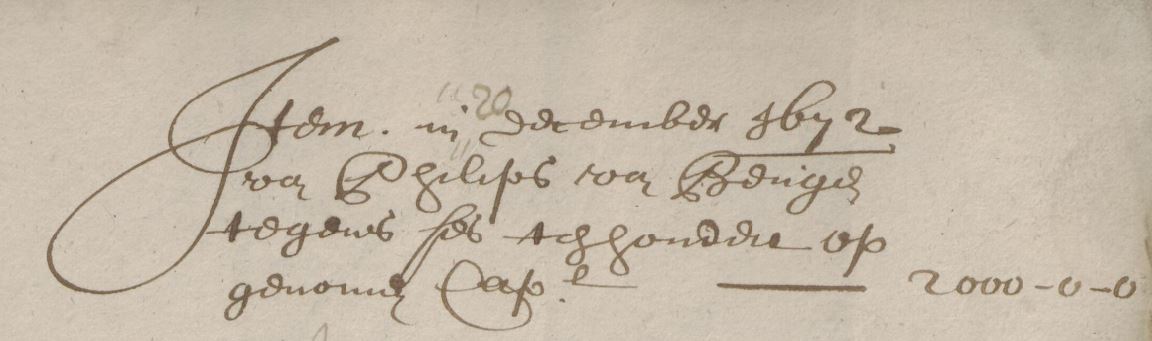 Item. in 20 december 1672
van Philips van Beugen
tegens ses tchhondert op
genomen Cap.l 2000-0-0